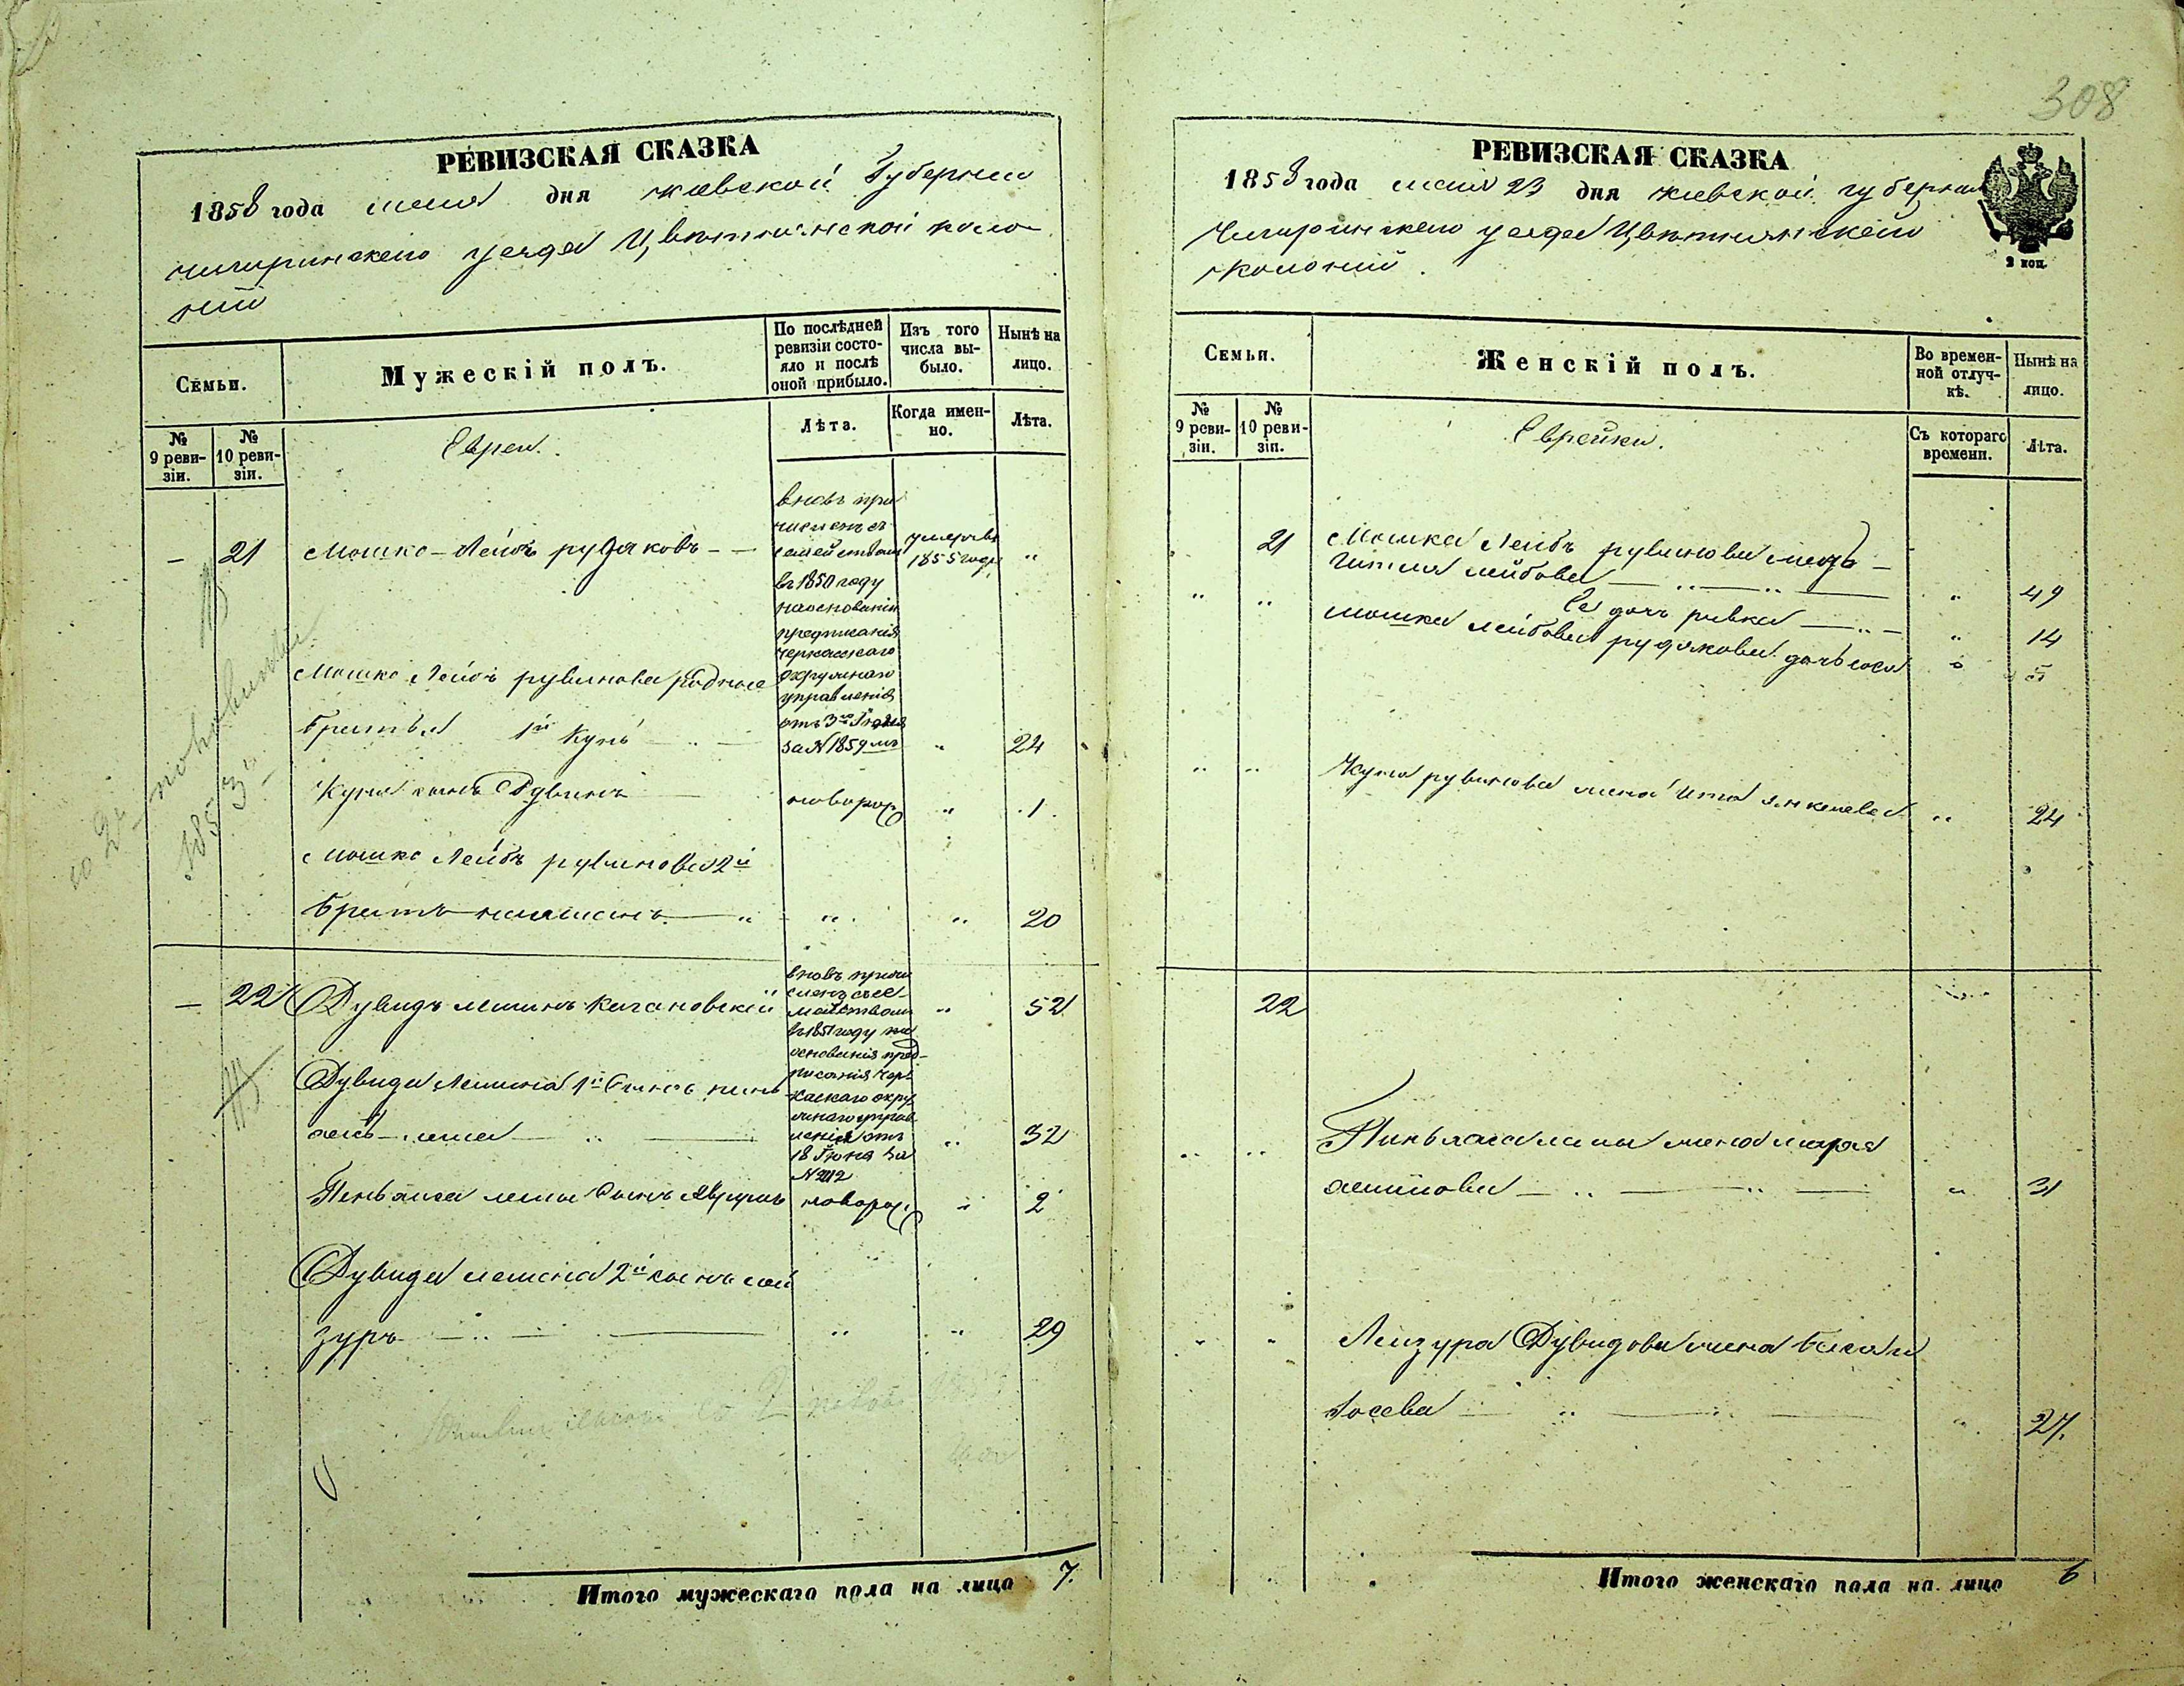 308
РЕВИЗСКАЯ СКАЗКА
1858 года мая дня киевской Губернии
чигиринского уезда Цветнянской коло-
нии
Семьи.
Мужескій полъ.
По послѣдней ревизіи состо-яло и послѣ оной прибыло.
Изъ того числа вы-было.
Нынѣ на лицо.
№ 9 реви-зіи.
№ 10 реви-зіи.
Евреи.
Лѣта.
Когда имен-но.
Лѣта.
– 21 Мошко-Лейбъ рудяковъ
вновь при
численъ съ
семействомъ
въ 1850 году
на основаніи
предписанія
черкасскаго
окружнаго
управленія
отъ 3го Іюля
за N 1859мъ
умеръ въ
1855 году
"
Мошко Лейбъ рувинова родные
братья 1й Кунъ " 24
Куна сынъ Рувинъ новорож " 1
Мошко Лейбъ рувинова 2й
братъ " " " 20
– 22 Дувидъ лешинъ кагановскій " 52
вновь причи
сленъ съ се-
мействомъ
въ 1851 году на
основанія пред-
писанія Чер-
каскаго окру
жнаго управ
ленія отъ
18 Іюня за
N 2112
Дувида Лешина 1й сынъ пинь
" 32
Пиньхаса леши сынъ новорож. " 2
Дувида лешина 2й сынъ лей
зуръ " " 29
Итого мужескаго пола на лицо 7.
РЕВИЗСКАЯ СКАЗКА
1858 года мая 23 дня киевской губернии
Чигиринского уезда Цветнянской
колонии.
2 коп.
Семьи.
Женскій полъ.
Во времен-ной отлуч-кѣ.
Нынѣ на лицо.
№ 9 реви-зіи.
№ 10 реви-зіи.
Еврейки.
Съ котораго времени.
Лѣта.
21 Мошка Лейбъ рувинова мать
гитля лейбова " 49
" " Ее дочь ривка " 14
Мошка лейбова рудякова дочь " 5
" " Куна рувинова жена ита янкелева " 24
22
" " Пиньхаса леши жена
" 31
" " Лейзура Дувидова жена
Иосева " 27.
Итого женскаго пола на лицо 6